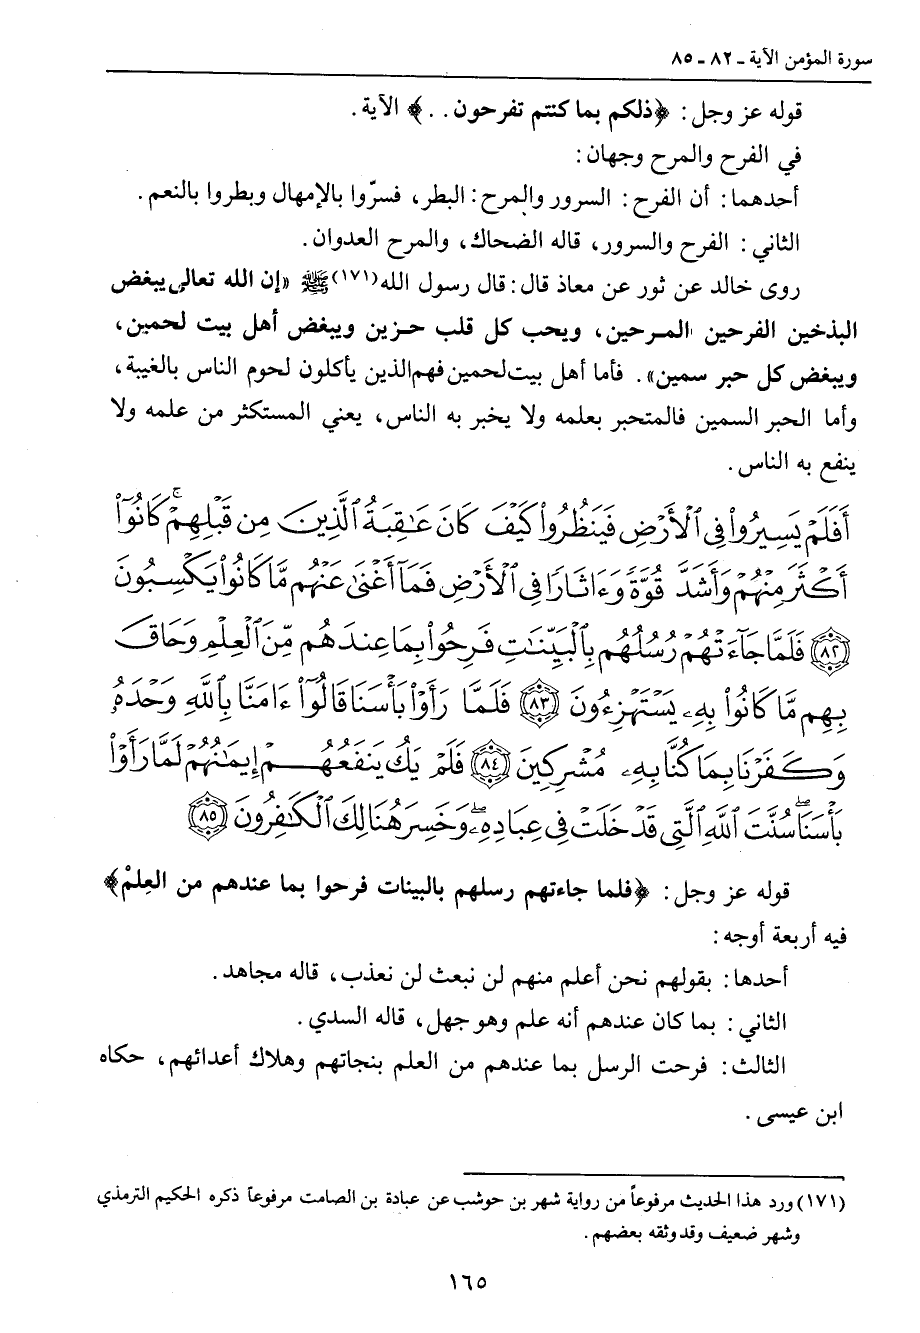 سورة المؤمن الآية ـ ٨٢ ـ ٨٥
قوله عز وجل: ﴿ذلكم بما كنتم تفرحون . . ﴾ الآية.
في الفرح والمرح وجهان:
أحدهما: أن الفرح: السرور والمرح: البطر، فسرّوا بالإمهال وبطروا بالنعم.
الثاني: الفرح والسرور، قاله الضحاك، والمرح العدوان.
روى خالد عن ثور عن معاذ قال: قال رسول الله(١٧١)ﷺ «إن الله تعالى يبغض
البذخين الفرحين المرحين، ويحب كل قلب حزين ويبغض أهل بيت لحمين،
ويبغض كل حبر سمين». فأما أهل بيت لحمين فهم الذين يأكلون لحوم الناس بالغيبة،
وأما الحبر السمين فالمتحبر بعلمه ولا يخبر به الناس، يعني المستكثر من علمه ولا
ينفع به الناس.
أَفَلَمْ يَسِيرُوا۟ فِى ٱلْأَرْضِ فَيَنظُرُوا۟ كَيْفَ كَانَ عَـٰقِبَةُ ٱلَّذِينَ مِن قَبْلِهِمْ ۚ كَانُوٓا۟
أَكْثَرَ مِنْهُمْ وَأَشَدَّ قُوَّةً وَءَاثَارًا فِى ٱلْأَرْضِ فَمَآ أَغْنَىٰ عَنْهُم مَّا كَانُوا۟ يَكْسِبُونَ
﴿٨٢﴾ فَلَمَّا جَآءَتْهُمْ رُسُلُهُم بِٱلْبَيِّنَـٰتِ فَرِحُوا۟ بِمَا عِندَهُم مِّنَ ٱلْعِلْمِ وَحَاقَ
بِهِم مَّا كَانُوا۟ بِهِۦ يَسْتَهْزِءُونَ ﴿٨٣﴾ فَلَمَّا رَأَوْا۟ بَأْسَنَا قَالُوٓا۟ ءَامَنَّا بِٱللَّهِ وَحْدَهُۥ
وَكَفَرْنَا بِمَا كُنَّا بِهِۦ مُشْرِكِينَ ﴿٨٤﴾ فَلَمْ يَكُ يَنفَعُهُمْ إِيمَـٰنُهُمْ لَمَّا رَأَوْا۟
بَأْسَنَا ۖ سُنَّتَ ٱللَّهِ ٱلَّتِى قَدْ خَلَتْ فِى عِبَادِهِۦ ۖ وَخَسِرَ هُنَالِكَ ٱلْكَـٰفِرُونَ ﴿٨٥﴾
قوله عز وجل: ﴿فلما جاءتهم رسلهم بالبينات فرحوا بما عندهم من العِلمْ﴾
فيه أربعة أوجه:
أحدها: بقولهم نحن أعلم منهم لن نبعث لن نعذب، قاله مجاهد.
الثاني: بما كان عندهم أنه علم وهو جهل، قاله السدي.
الثالث: فرحت الرسل بما عندهم من العلم بنجاتهم وهلاك أعدائهم، حكاه
ابن عيسى.
(١٧١) ورد هذا الحديث مرفوعاً من رواية شهر بن حوشب عن عبادة بن الصامت مرفوعاً ذكره الحكيم الترمذي
وشهر ضعيف وقد وثقه بعضهم.
١٦٥